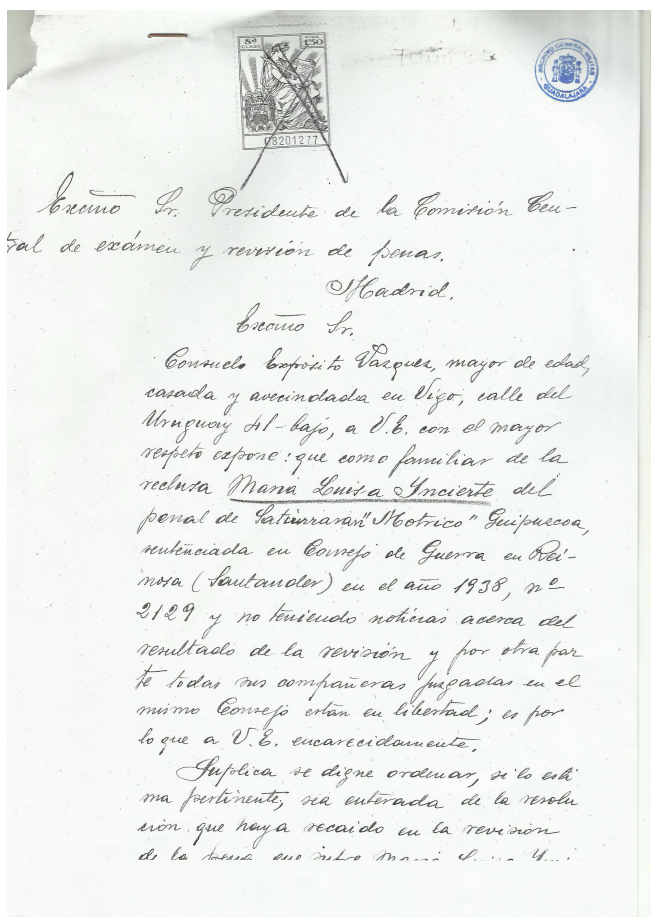 8ª CLASE
PTAS. 1'50
C8201277
ARCHIVO GENERAL MILITAR
GUADALAJARA
Excmo Sr. Presidente de la Comisión Cen-
tral de exámen y revisión de penas.
Madrid.
Excmo Sr.
Consuelo Expósito Vazquez, mayor de edad,
casada y avecindada en Vigo, calle del
Uruguay 41-bajo, a V.E. con el mayor
respeto expone: que como familiar de la
reclusa Maria Luisa Yncierte del
penal de Saturraran "Motrico" Guipuscoa,
sentenciada en Consejo de Guerra en Rei-
nosa (Santander) en el año 1938, nº
2129 y no teniendo noticias acerca del
resultado de la revisión y por otra par
te todas sus compañeras juzgadas en el
mismo Consejo están en libertad; es por
lo que a V.E. encarecidamente.
Suplica se digne ordenar, si lo esti
ma pertinente, sea enterada de la resolu
ción que haya recaido en la revisión
de la pena que sufre Maria Luisa